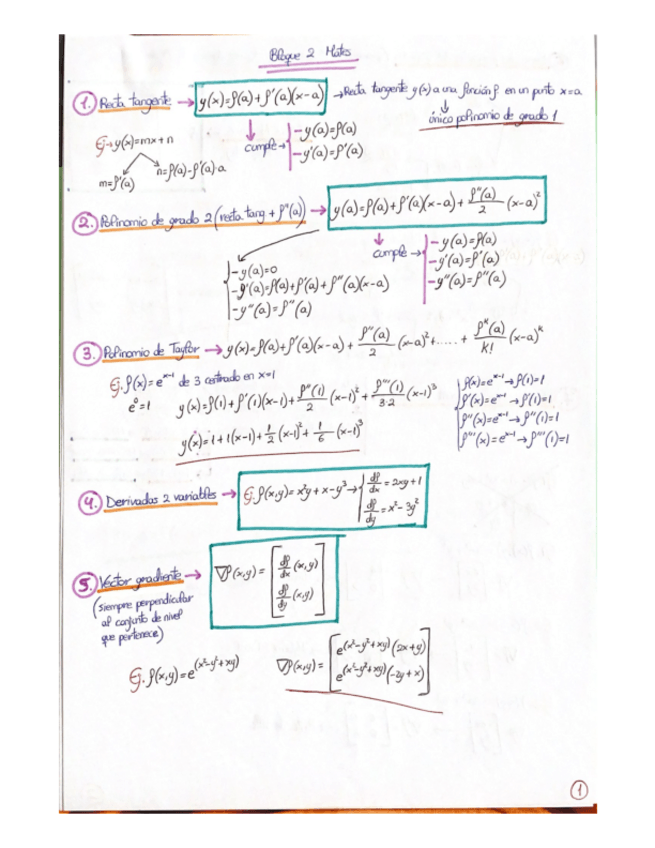 Bloque 2 Mates
1. Recta tangente → y(x)=f(a)+f'(a)(x-a) → Recta tangente y(x) a una función f en un punto x=a
↓
único polinomio de grado 1
↓ cumple → - y(a)=f(a)
- y'(a)=f'(a)
Ej → y(x)=mx+n
m=f'(a) n=f(a)-f'(a)·a
2. Polinomio de grado 2 (recta tang + f''(a)) → y(a)=f(a)+f'(a)(x-a)+ f''(a)/2 (x-a)²
↓ cumple → - y(a)=f(a)
- y'(a)=f'(a)
- y''(a)=f''(a)
- y(a)=0
- y'(a)=f(a)+f'(a)+f''(a)(x-a)
- y''(a)=f''(a)
3. Polinomio de Taylor → y(x)=f(a)+f'(a)(x-a)+ f''(a)/2 (x-a)²+.....+ fᵏ(a)/k! (x-a)ᵏ
Ej. f(x)=eˣ⁻¹ de 3 centrado en x=1
e⁰=1 y(x)=f(1)+f'(1)(x-1)+ f''(1)/2 (x-1)²+ f'''(1)/3·2 (x-1)³
y(x)=1+1(x-1)+ 1/2 (x-1)²+ 1/6 (x-1)³
f(x)=eˣ⁻¹ → f(1)=1
f'(x)=eˣ⁻¹ → f'(1)=1
f''(x)=eˣ⁻¹ → f''(1)=1
f'''(x)=eˣ⁻¹ → f'''(1)=1
4. Derivadas 2 variables → Ej. f(x,y)=x²y+x-y³ → df/dx = 2xy+1
df/dy = x²-3y²
5. Vector gradiente → ∇f(x,y) = [df/dx (x,y)
df/dy (x,y)]
(siempre perpendicular
al conjunto de nivel
que pertenece)
Ej. f(x,y)=e^(x²-y²+xy) ∇f(x,y) = [e^(x²-y²+xy)(2x+y)
e^(x²-y²+xy)(-2y+x)]
1